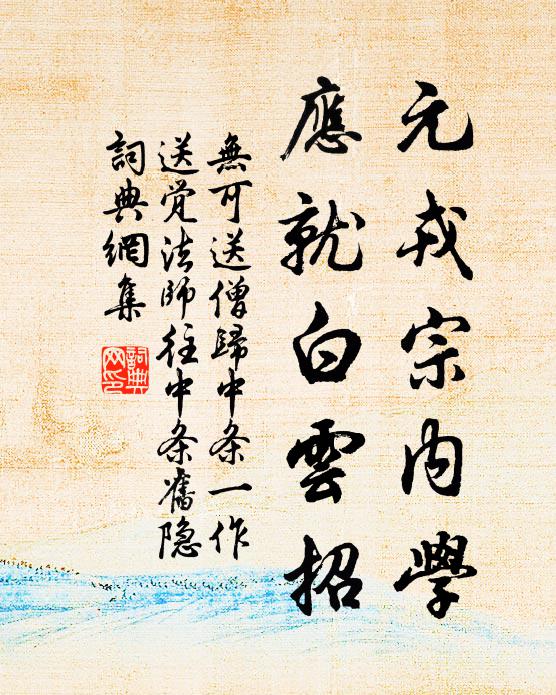 元戎宗内學
應就白雲招
無可送僧歸中条一作
送覚法師往中条舊隐
詞典網集
詞典网印